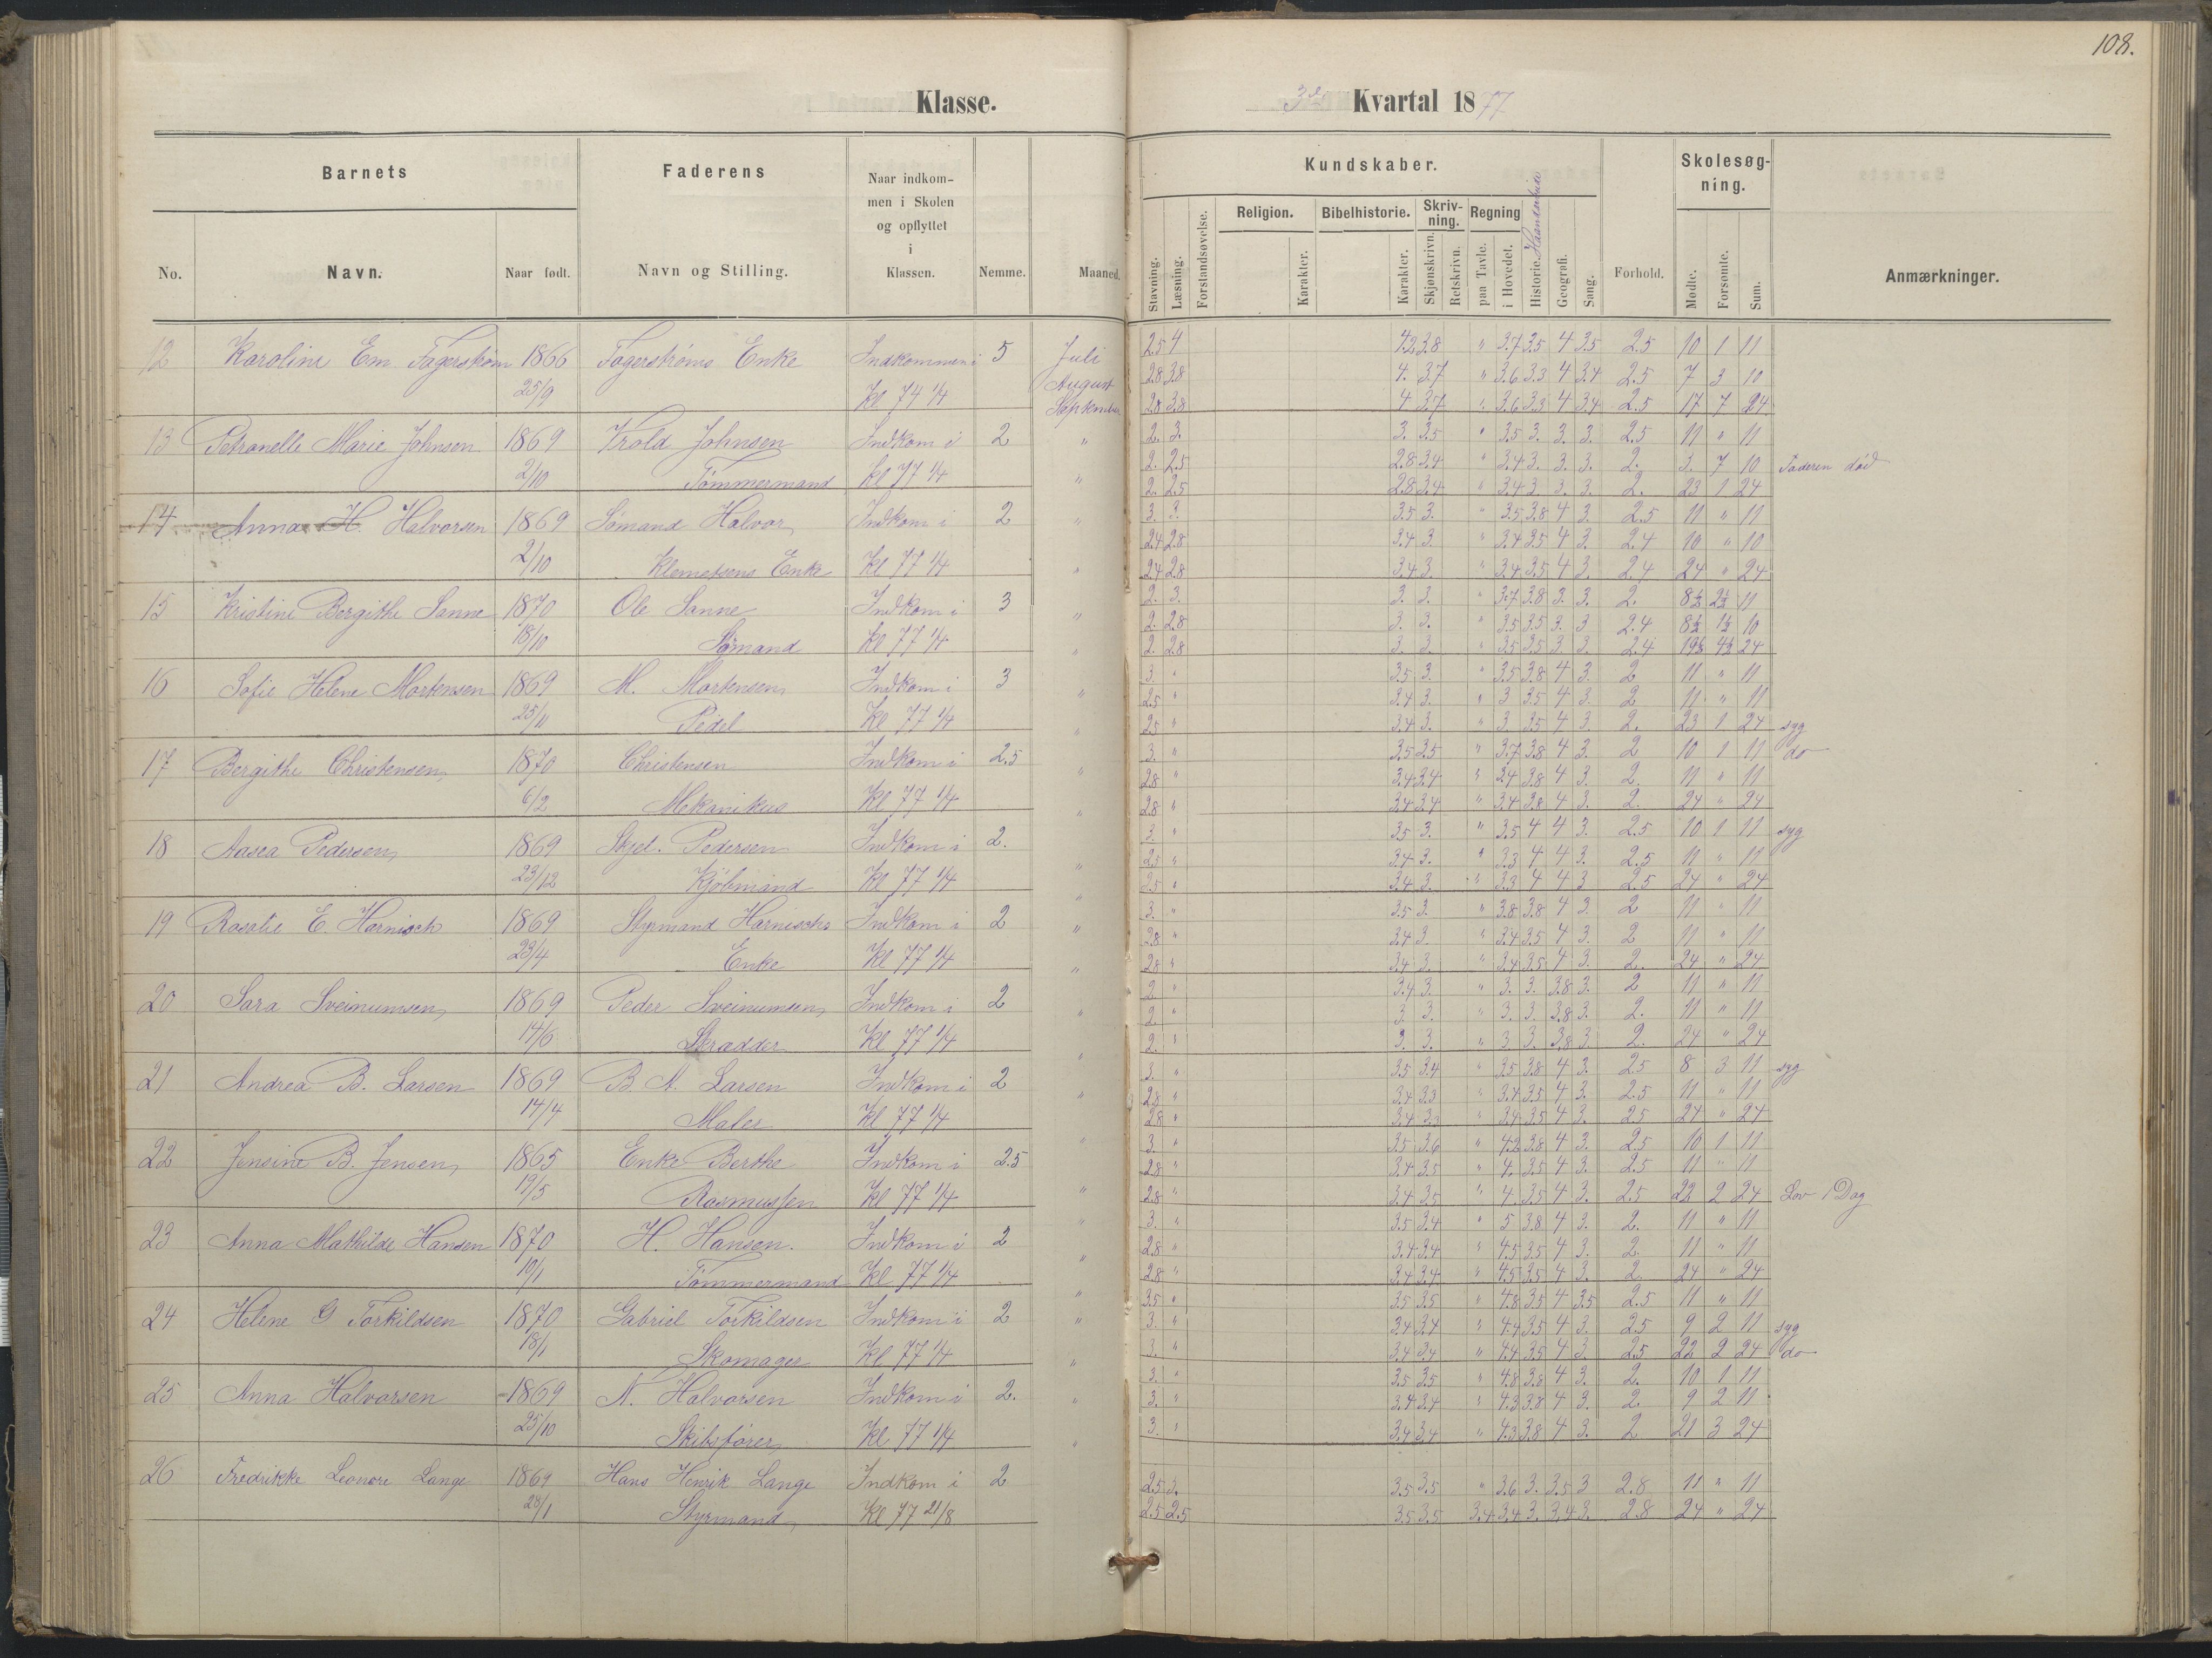 108.
Klasse.
3die Kvartal 1877
Barnets
Faderens
Naar indkom-
men i Skolen
og opflyttet
i
Klassen.
Nemme.
Maaned.
No.
Navn.
Naar født.
Navn og Stilling.
Kundskaber.
Stavning.
Læsning.
Forstandsøvelse.
Religion.
Karakter.
Bibelhistorie.
Karakter.
Skriv-
ning.
Skjønskrivn.
Retskrivn.
Regning
paa Tavle.
i Hovedet.
Historie. Haandarbeide
Geografi.
Sang.
Forhold.
Skolesøg-
ning.
Mødte.
Forsømte.
Sum.
Anmærkninger.
12 Karoline Em. Fagerstrøm 1866 Fagerstrøms Enke Indkommen i 5 Juli 2.5 4 4.2 3.8 " 3.7 3.5 4 3.5 2.5 10 1 11
25/9 Kl 74 1/4 August 2.8 3.8 4. 3.7 " 3.6 3.3 4 3.4 2.5 7 3 10
September 2.8 3.8 4 3.7 " 3.6 3.3 4 3.4 2.5 17 7 24
13 Petronelle Marie Johnsen 1869 Trold Johnsen Indkom i 2 " 2. 3. 3. 3.5 " 3.5 3. 3. 3. 2.5 11 " 11
2/10 Tømmermand Kl 77 1/4 2. 2.5 2.8 3.4 " 3.4 3. 3. 3. 2. 3. 7 10 Faderen død
" 2. 2.5 2.8 3.4 " 3.4 3 3. 3. 2. 23 1 24
14 Anna H. Halvorsen 1869 Sømand Halvor Indkom i 2 " 3. 3. 3.5 3. " 3.5 3.8 4 3. 2.5 11 " 11
2/10 Klemetsens Enke Kl 77 1/4 2.4 2.8 3.4 3 " 3.4 3.5 4 3. 2.4 10 " 10
" 2.4 2.8 3.4 3. " 3.4 3.5 4 3. 2.4 24 " 24
15 Kristine Bergithe Sanne 1870 Ole Sanne Indkom i 3 " 2. 3. 3. 3. " 3.7 3.8 3. 3. 2. 8½ 2½ 11
18/10 Sømand Kl 77 1/4 2. 2.8 3. 3. " 3.5 3.5 3. 3 2.4 8½ 1½ 10
" 2. 2.8 3. 3. " 3.5 3.5 3. 3. 2.4 19½ 4½ 24
16 Sofie Helene Mortensen 1869 M. Mortensen Indkom i 3 " 3. " 3.5 3. " 3.5 3.8 4 3. 2 11 " 11
25/11 Pedel Kl 77 1/4 2.5 " 3.4 3. " 3 3.5 4 3. 2 11 " 11
" 2.5 " 3.4 3. " 3. 3.5 4 3. 2. 23 1 24 syg
17 Bergithe Christensen 1870 Christensen Indkom i 2.5 " 3. " 3.5 3.5 " 3.7 3.8 4 3. 2 10 1 11 do
6/2 Mekanikus Kl 77 1/4 2.8 " 3.4 3.4 " 3.4 3.8 4 3. 2. 11 " 11
" 2.8 " 3.4 3.4 " 3.4 3.8 4 3. 2. 24 " 24
18 Aasea Pedersen 1869 Pedersen Indkom i 2. " 3. " 3.5 3. " 3.5 4 4 3. 2.5 10 1 11 syg
23/12 Kjøbmand Kl 77 1/4 2.5 " 3.4 3. " 3.3 4 4 3. 2.5 11 " 11
" 2.5 " 3.4 3. " 3.3 4 4 3 2.5 24 " 24
19 Rosalie E. Harnisch 1869 Styrmand Harnischs Indkom i 2 " 3. " 3.5 3. " 3.8 3.8 4 3. 2 11 " 11
23/4 Enke Kl 77 1/4 2.8 " 3.4 3. " 3.4 3.5 4 3. 2 11 " 11
" 2.8 " 3.4 3. " 3.4 3.5 4 3. 2. 24 " 24
20 Sara Sveinumsen 1869 Peder Sveinumsen Indkom i 2 " 2 " 3.4 3. " 3. 3. 3.8 3. 2 11 " 11
14/6 Skrædder Kl 77 1/4 2. " 3 3. " 3. 3. 3.8 3. 2. 11 " 11
" 2. " 3. 3. " 3 3. 3.8 3 2. 24 " 24
21 Andrea B. Larsen 1869 B. A. Larsen Indkom i 2 " 3. " 3.5 3.4 " 3.5 3.8 4 3. 2.5 8 3 11 syg
14/4 Maler Kl 77 1/4 2.8 " 3.4 3.3 " 3.4 3.5 4 3. 2.5 11 " 11
" 2.8 " 3.4 3.3 " 3.4 3.5 4 3. 2.5 24 " 24
22 Jensine B. Jensen 1865 Enke Berthe Indkom i 2.5 3. " 3.5 3.6 " 4.2 3.8 4 3. 2.5 10 1 11
19/5 Rasmussen Kl 77 1/4 " 2.8 " 3.4 3.5 " 4. 3.5 4 3. 2.5 11 " 11
2.8 " 3.4 3.5 " 4. 3.5 4 3. 2.5 22 2 24 Lov 1 Dag
23 Anna Mathilde Hansen 1870 H. Hansen. Indkom i 2 " 3. " 3.5 3.4 " 5 3.8 4 3. 2. 11 " 11
10/1 Tømmermand Kl 77 1/4 " 2.8 " 3.4 3.4 " 4.5 3.5 4 3. 2. 11 " 11
2.8 " 3.4 3.4 " 4.5 3.5 4 3. 2. 24 " 24
24 Helene G Torkildsen 1870 Gabriel Torkildsen Indkom i 2 " 3.5 " 3.5 3.5 " 4.8 3.5 4 3.5 2.5 11 " 11
18/1 Skomager Kl 77 1/4 " 3. " 3.4 3.4 " 4.4 3.5 4 3. 2.5 9 2 11 syg
3. " 3.4 3.4 " 4.4 3.5 4 3. 2.5 22 2 24 do
25 Anna Halvorsen 1869 N. Halvorsen Indkom i 2. " 3. " 3.5 3.5 " 4.8 3.8 4 3. 2. 10 1 11
25/10 Skibsfører Kl 77 1/4 " 3. " 3.4 3.4 " 4.3 3.8 4 3. 2. 9 2 11
3. " 3.4 3.4 " 4.3 3.8 4 3. 2 21 3 24
26 Fredrikke Leonore Lange 1869 Hans Henrik Lange Indkom i 2 2.5 3. 3.5 3.5 " 3.6 3. 3.5 3 2.8 11 " 11
28/1 Styrmand Kl 77 21/8 2.5 2.5 3.5 3.5 3.4 3.4 3. 3.4 3. 2.8 24 " 24